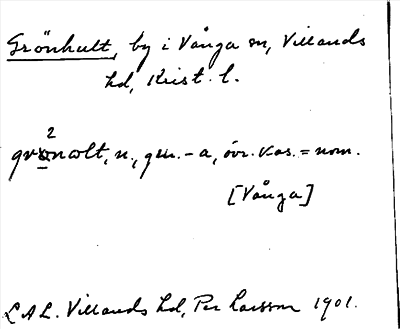 Grönhult, by i Vånga sn, Villands
hd, Krist. l.
2
grønolt, n., gen. -a, övr. kas. = nom.
[Vånga]
LAL. Villands hd, Per Larsson 1901.